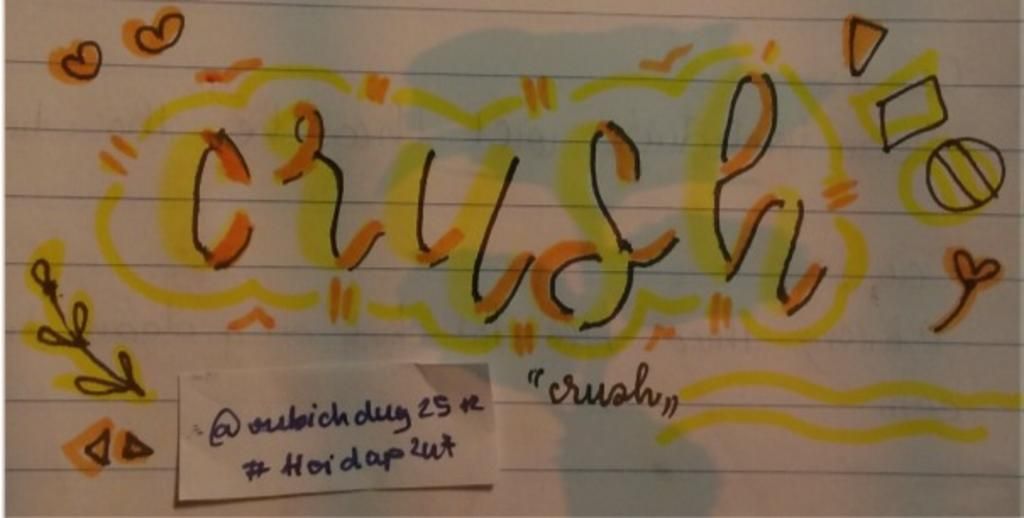 crush
"crush„
@rubichduy25#2
#Hoidap247